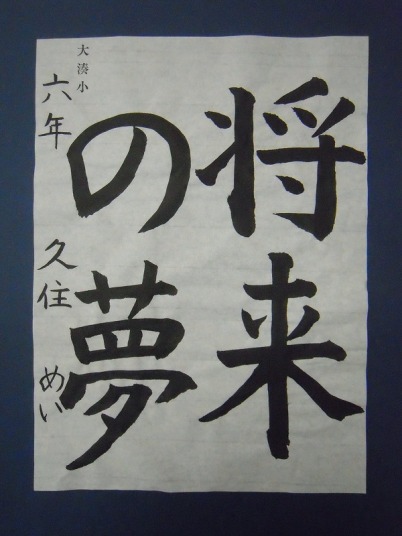 将来
の夢
大湊小
六年 久住 めい